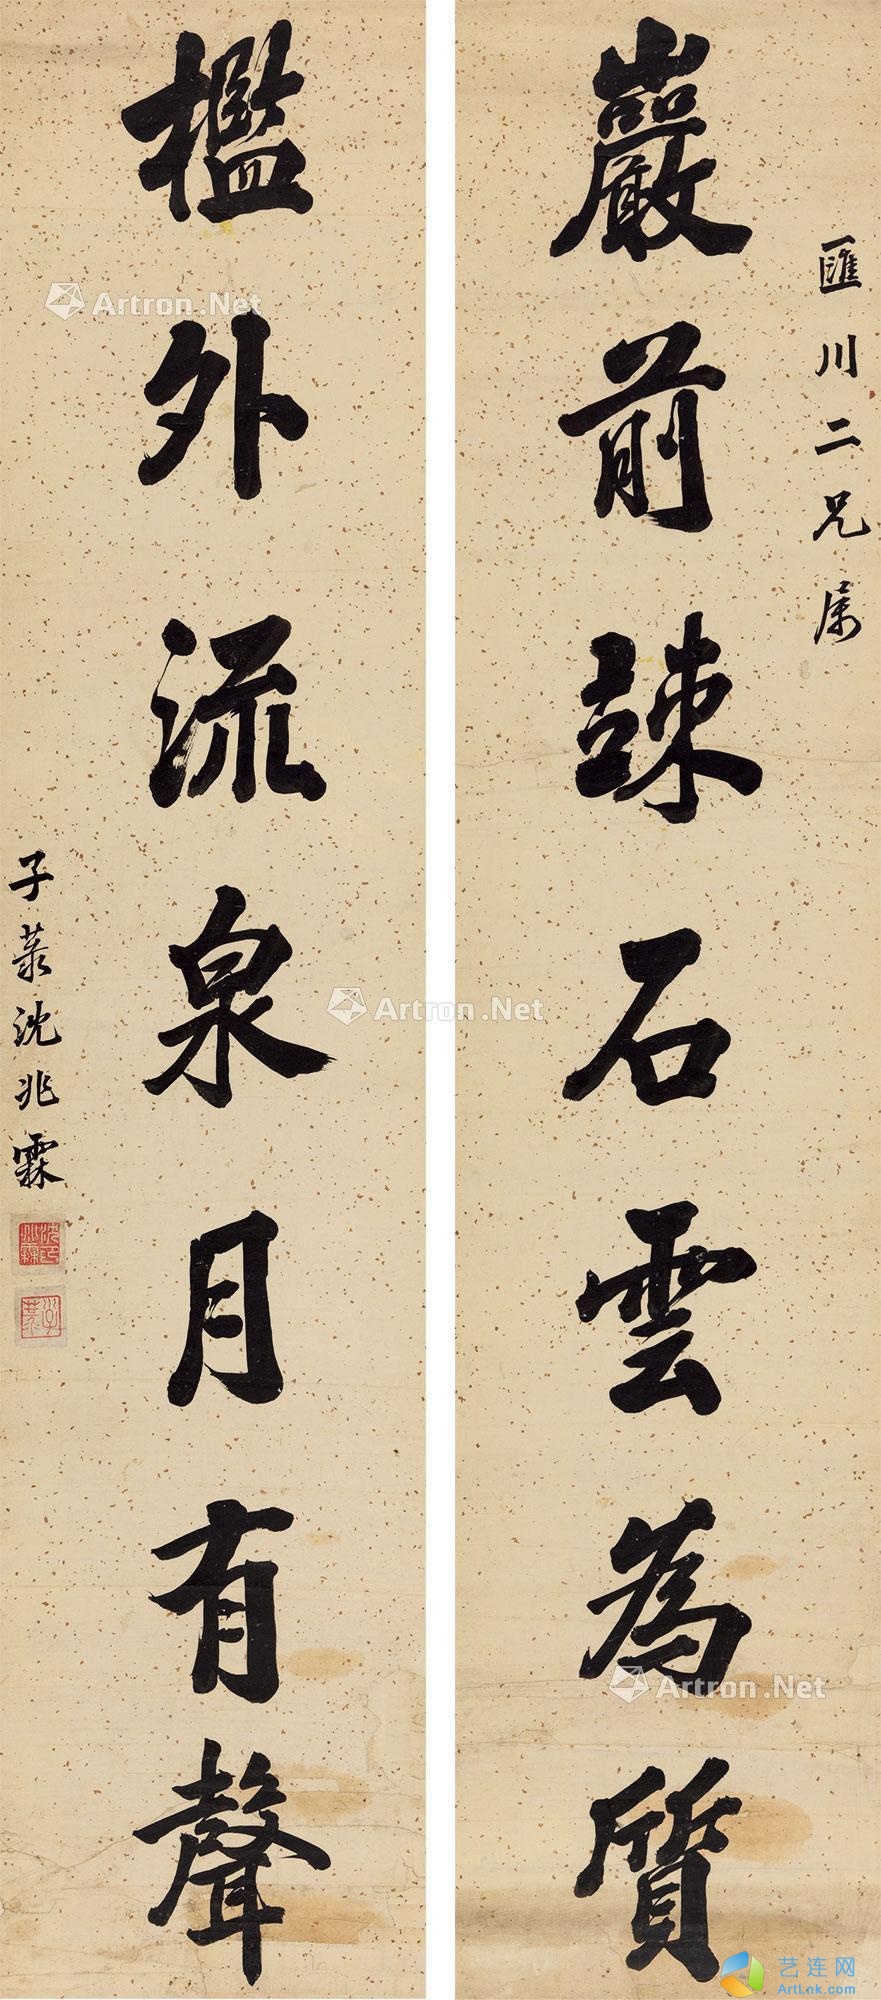 匯川二兄属
巖前竦石雲為質
檻外流泉月有聲
子菉沈兆霖
沈兆霖印
子菉
Artron.Net
Artron.Net
Artron.Net
艺连网
ArtLnk.com